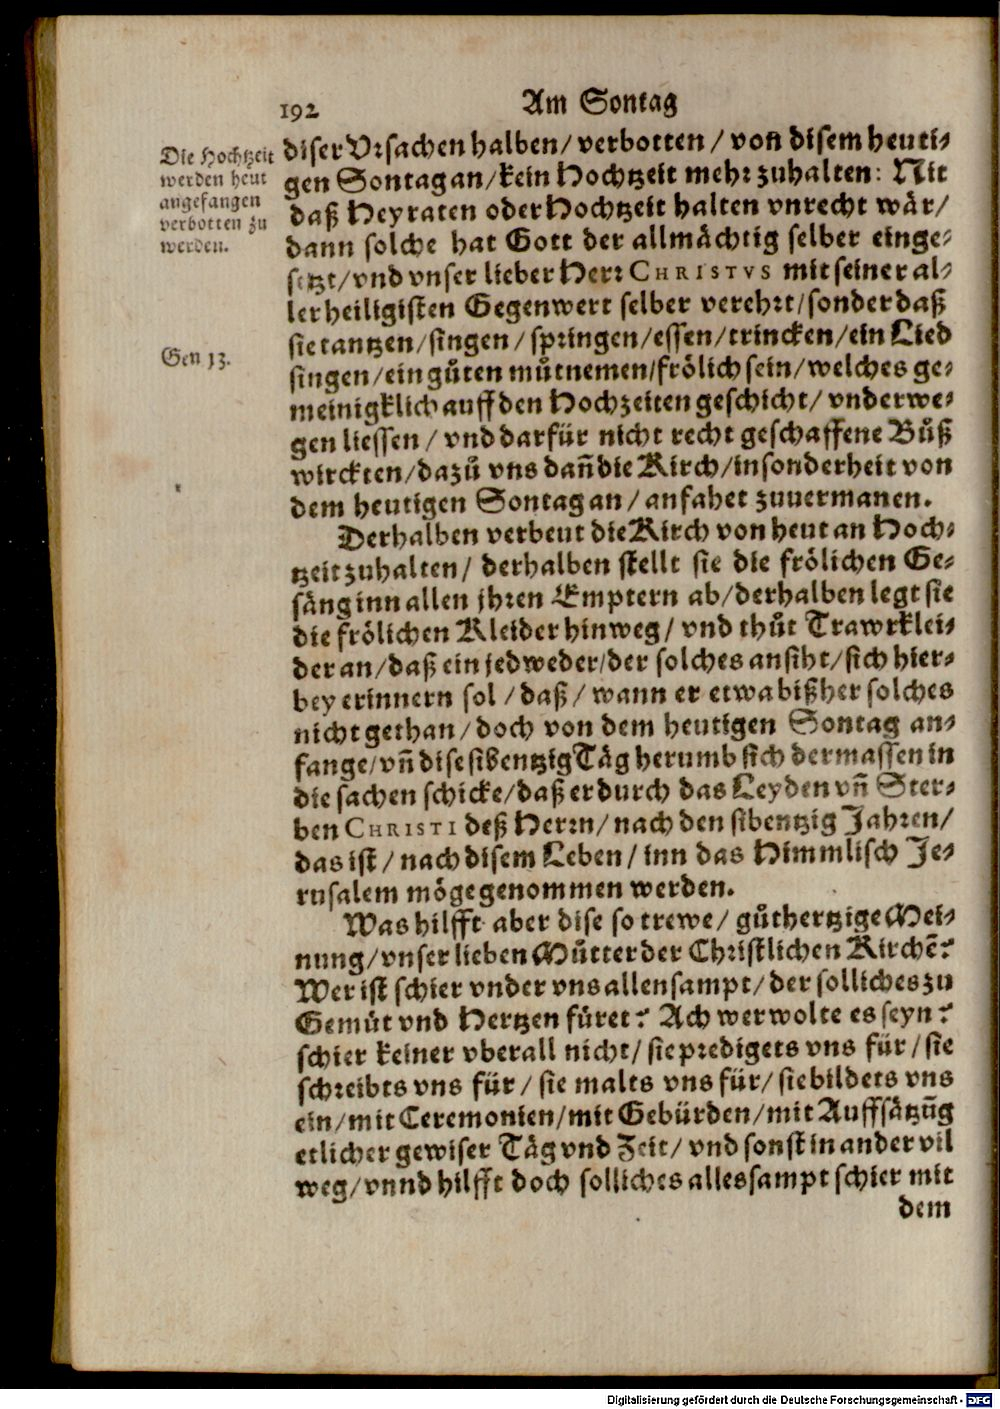 192
Am Sontag
Die Hochtzeit
werden heut
angefangen
verbotten zu
werden.
Gen 13.
diser Vrsachen halben/ verbotten / von disem heuti-
gen Sontag an/ kein Hochtzeit mehr zuhalten: Nit
daß Heyraten oder Hochtzeit halten vnrecht wär/
dann solche hat Gott der allmächtig selber einge-
setzt/ vnd vnser lieber Herr CHRISTVS mit seiner al-
lerheiligisten Gegenwert selber verehrt/ sonder daß
sie tantzen/ singen/ springen/ essen/ trincken/ ein Lied
singen/ ein gůten můt nemen/ frölich sein/ welches ge-
meinigklich auff den Hochzeiten geschicht/ vnderwe-
gen liessen / vnd darfür nicht recht geschaffene Bůß
wirckten/ dazů vns dañ die Kirch/ insonderheit von
dem heutigen Sontag an / anfahet zuuermanen.
Derhalben verbeut die Kirch von heut an Hoch-
tzeit zuhalten/ derhalben stellt sie die frölichen Ge-
säng inn allen jhren Emptern ab/ derhalben legt sie
die frölichen Kleider hinweg/ vnd thůt Trawrklei-
der an/ daß ein jedweder/ der solches ansiht/ sich hier-
bey erinnern sol / daß/ wann er etwa bißher solches
nicht gethan/ doch von dem heutigen Sontag an-
fange/ vñ dise sibentzig Täg herumb sich dermassen in
die sachen schicke/ daß er durch das Leyden vñ Ster-
ben CHRISTI deß Herrn/ nach den sibentzig Jahren/
das ist / nach disem Leben/ inn das Himmlisch Je-
rusalem möge genommen werden.
Was hilfft aber dise so trewe/ gůthertzige Mei-
nung/ vnser lieben Můtter der Christlichen Kirchẽ?
Wer ist schier vnder vns allensampt/ der solliches zu
Gemůt vnd Hertzen füret? Ach wer wolte es seyn?
schier keiner vberall nicht/ sie predigets vns für/ sie
schreibts vns für / sie malts vns für/ sie bildets vns
ein/ mit Ceremonien/ mit Gebürden/ mit Auffsätzũg
etlicher gewiser Täg vnd Zeit/ vnd sonst in ander vil
weg/ vnnd hilfft doch solliches alles sampt schier mit
dem
Digitalisierung gefördert durch die Deutsche Forschungsgemeinschaft - DFG